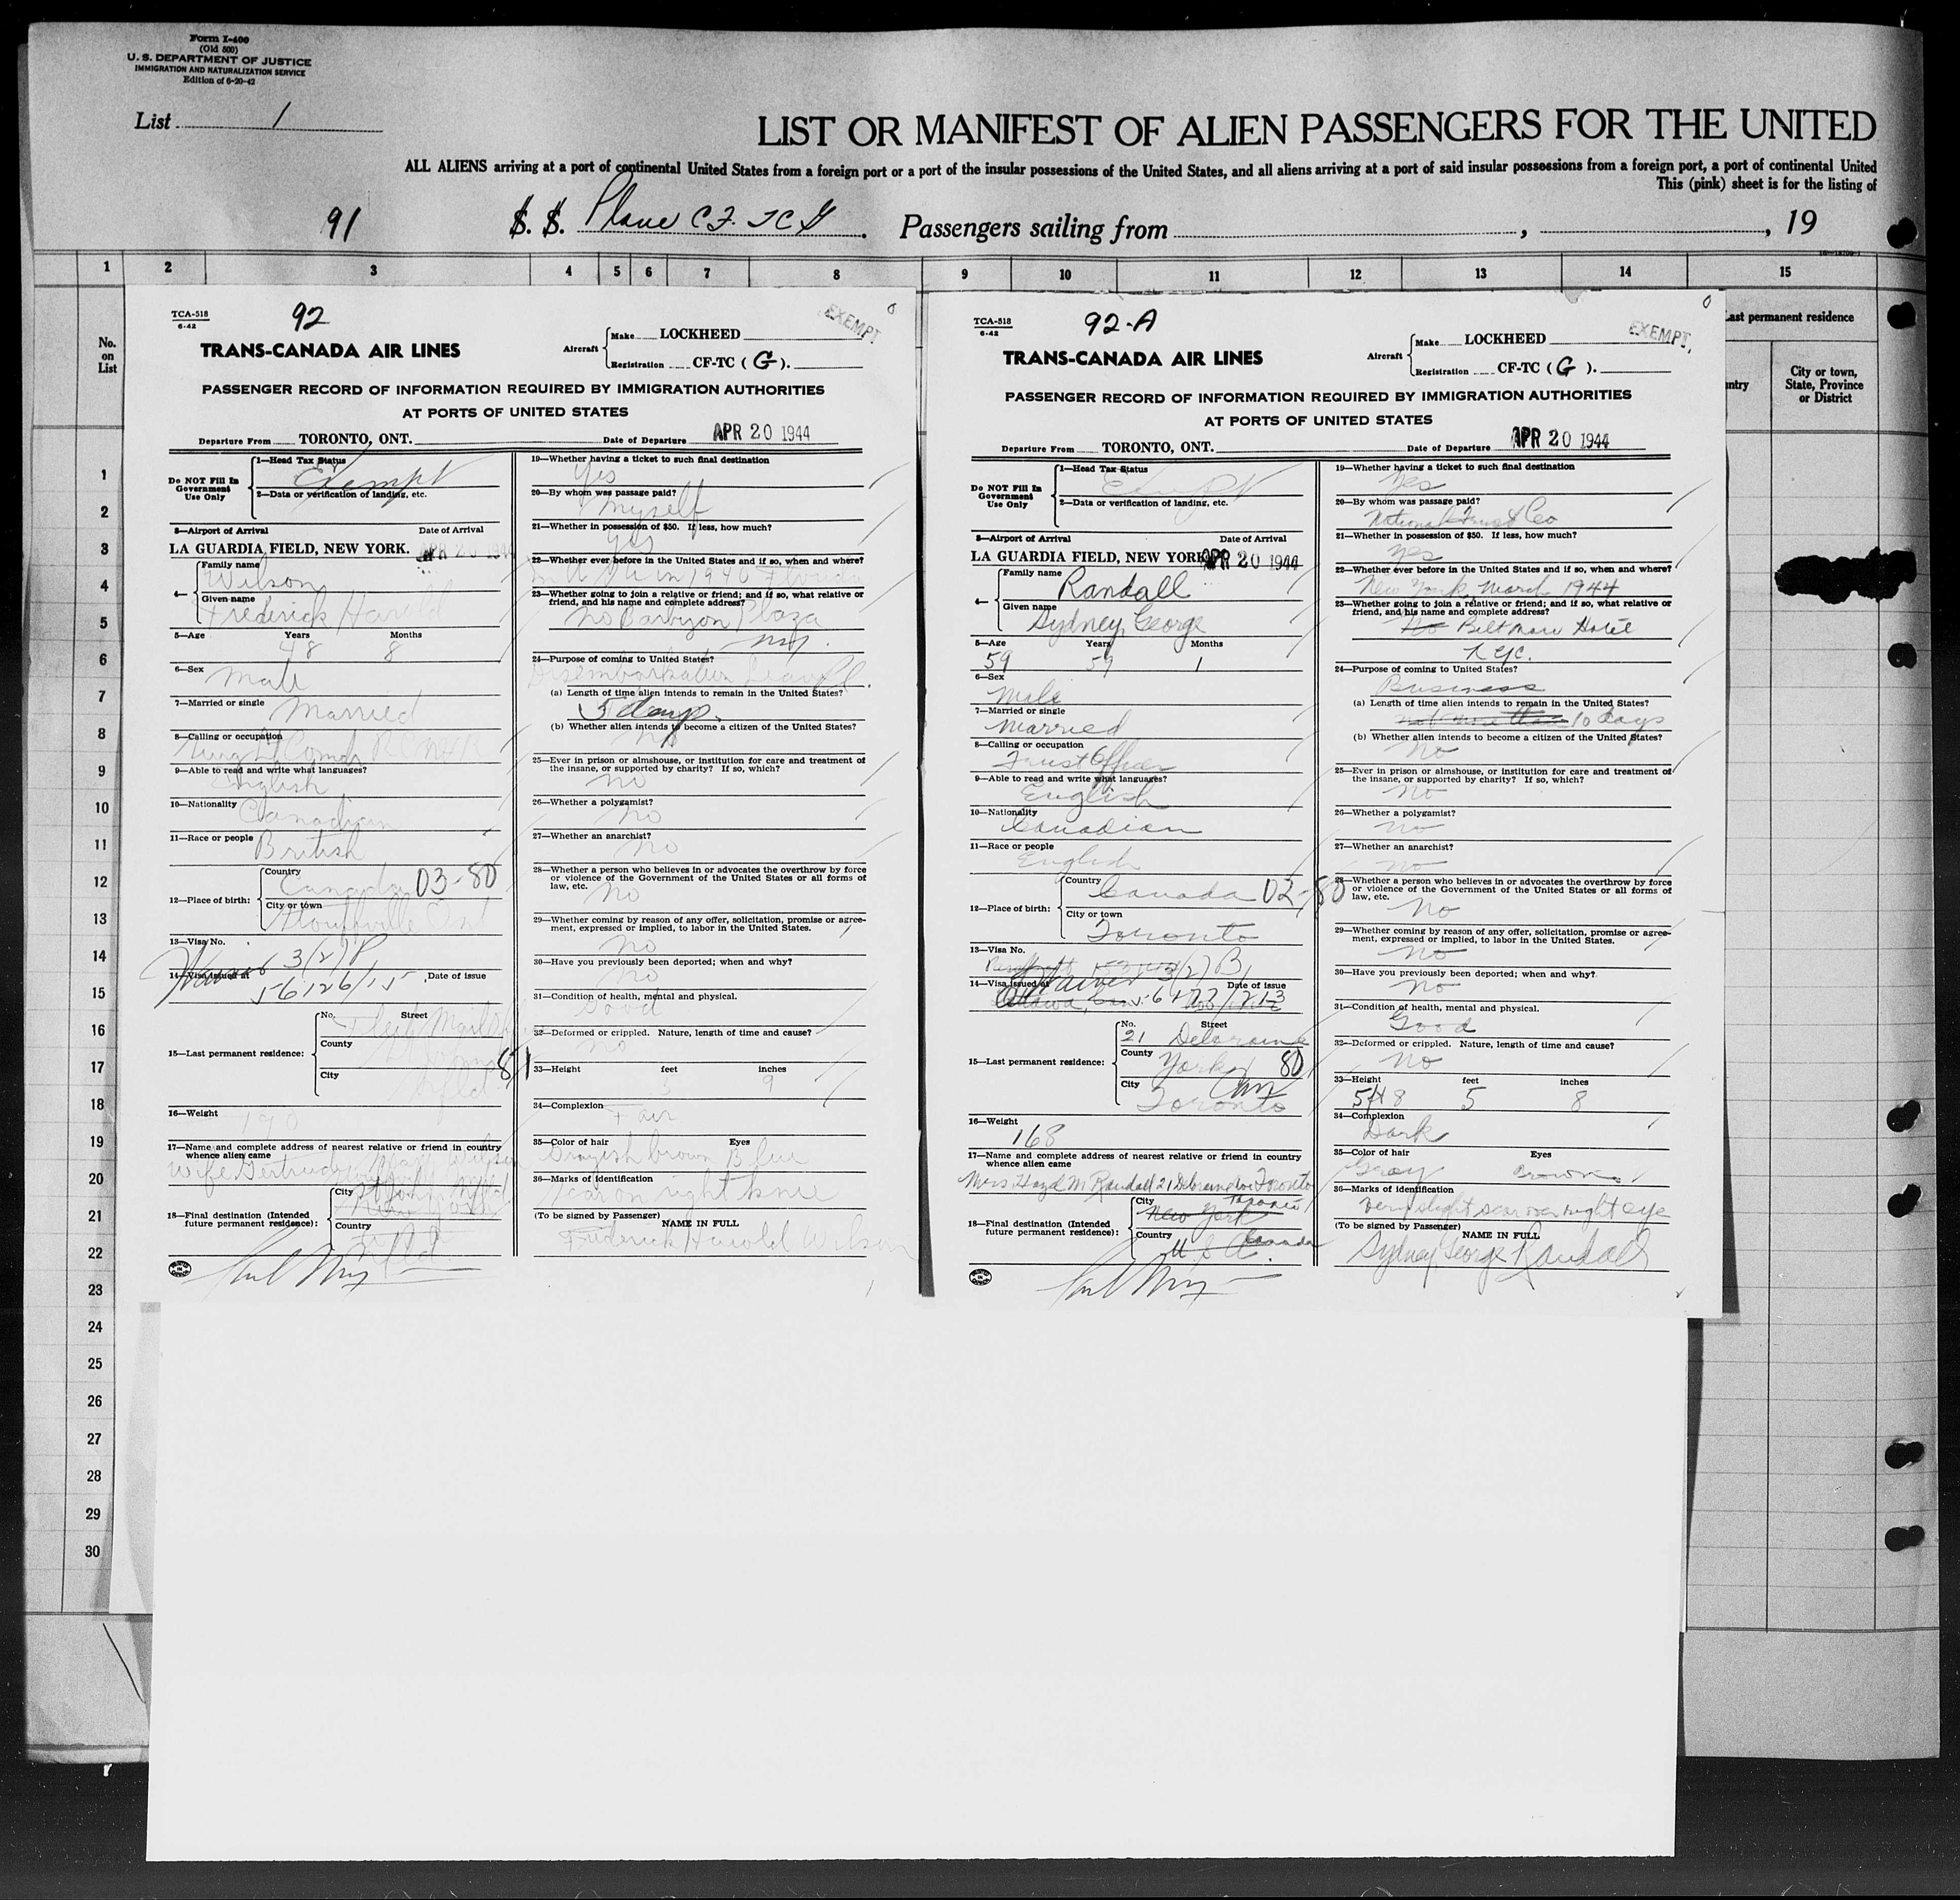 Form I-400
(Old 500)
U. S. DEPARTMENT OF JUSTICE
IMMIGRATION AND NATURALIZATION SERVICE
Edition of 6-20-42
List 1
LIST OR MANIFEST OF ALIEN PASSENGERS FOR THE UNITED
ALL ALIENS arriving at a port of continental United States from a foreign port or a port of the insular possessions of the United States, and all aliens arriving at a port of said insular possessions from a foreign port, a port of continental United
This (pink) sheet is for the listing of
91 S. S. Plane CF-TCG. Passengers sailing from , , 19
1 2 3 4 5 6 7 8 9 10 11 12 13 14 15
No. on List
Last permanent residence
City or town, State, Province or District
1
2
3
4
5
6
7
8
9
10
11
12
13
14
15
16
17
18
19
20
21
22
23
24
25
26
27
28
29
30
TCA-518
6-42
92
EXEMPT
TRANS-CANADA AIR LINES
Aircraft Make LOCKHEED
Registration CF-TC (G).
PASSENGER RECORD OF INFORMATION REQUIRED BY IMMIGRATION AUTHORITIES
AT PORTS OF UNITED STATES
Departure From TORONTO, ONT. Date of Departure APR 20 1944
Do NOT Fill In Government Use Only
1—Head Tax Status
Exempt
2—Data or verification of landing, etc.
3—Airport of Arrival Date of Arrival
LA GUARDIA FIELD, NEW YORK. APR 20 1944
4— Family name
Wilson
Given name
Frederick Harold
5—Age Years Months
48 8
6—Sex
Male
7—Married or single
Married
8—Calling or occupation
9—Able to read and write what languages?
English
10—Nationality
Canadian
11—Race or people
British
12—Place of birth: Country
Canada 03-80
City or town
Stouffville Ont
13—Visa No.
3(2)P
14—Visa issued at Date of issue
Waived 56126/15
15—Last permanent residence: No. Street
County
City
16—Weight
190
17—Name and complete address of nearest relative or friend in country whence alien came
Wife Gertrude
18—Final destination (Intended future permanent residence): City
St John Nfld
New York
Country
Nfld
19—Whether having a ticket to such final destination
Yes
20—By whom was passage paid?
Myself
21—Whether in possession of $50. If less, how much?
Yes
22—Whether ever before in the United States and if so, when and where?
1940 Florida
23—Whether going to join a relative or friend; and if so, what relative or friend, and his name and complete address?
No Barbizon Plaza
NY.
24—Purpose of coming to United States?
Disembarkation Leave
(a) Length of time alien intends to remain in the United States?
5 days.
(b) Whether alien intends to become a citizen of the United States?
No
25—Ever in prison or almshouse, or institution for care and treatment of the insane, or supported by charity? If so, which?
No
26—Whether a polygamist?
No
27—Whether an anarchist?
No
28—Whether a person who believes in or advocates the overthrow by force or violence of the Government of the United States or all forms of law, etc.
No
29—Whether coming by reason of any offer, solicitation, promise or agreement, expressed or implied, to labor in the United States.
No
30—Have you previously been deported; when and why?
No
31—Condition of health, mental and physical.
Good
32—Deformed or crippled. Nature, length of time and cause?
No
33—Height feet inches
5 9
34—Complexion
Fair
35—Color of hair Eyes
Grayish brown Blue
36—Marks of identification
Scar on right knee
(To be signed by Passenger) NAME IN FULL
Frederick Harold Wilson
TCA-518
6-42
92-A
EXEMPT.
TRANS-CANADA AIR LINES
Aircraft Make LOCKHEED
Registration CF-TC (G).
PASSENGER RECORD OF INFORMATION REQUIRED BY IMMIGRATION AUTHORITIES
AT PORTS OF UNITED STATES
Departure From TORONTO, ONT. Date of Departure APR 20 1944
Do NOT Fill In Government Use Only
1—Head Tax Status
Exempt
2—Data or verification of landing, etc.
3—Airport of Arrival Date of Arrival
LA GUARDIA FIELD, NEW YORK. APR 20 1944
4— Family name
Randall
Given name
Sydney George
5—Age Years Months
59 59 1
6—Sex
Male
7—Married or single
Married
8—Calling or occupation
Trust Officer
9—Able to read and write what languages?
English
10—Nationality
Canadian
11—Race or people
English
12—Place of birth: Country
Canada 02-80
City or town
Toronto
13—Visa No.
3(2)B
14—Visa issued at Date of issue
Waived
Ottawa, Can.
15—Last permanent residence: No. Street
21 Deloraine
County
York 80
City
Toronto Can
16—Weight
168
17—Name and complete address of nearest relative or friend in country whence alien came
Mrs. Hazel M Randall 21 Deloraine Ave Toronto
18—Final destination (Intended future permanent residence): City
Toronto
New York
Country
Canada
U S A.
19—Whether having a ticket to such final destination
Yes
20—By whom was passage paid?
National Trust Co
21—Whether in possession of $50. If less, how much?
Yes
22—Whether ever before in the United States and if so, when and where?
New York, March 1944
23—Whether going to join a relative or friend; and if so, what relative or friend, and his name and complete address?
No Biltmore Hotel
N Y C.
24—Purpose of coming to United States?
Business
(a) Length of time alien intends to remain in the United States?
not more than 10 days
(b) Whether alien intends to become a citizen of the United States?
No
25—Ever in prison or almshouse, or institution for care and treatment of the insane, or supported by charity? If so, which?
No
26—Whether a polygamist?
No
27—Whether an anarchist?
No
28—Whether a person who believes in or advocates the overthrow by force or violence of the Government of the United States or all forms of law, etc.
No
29—Whether coming by reason of any offer, solicitation, promise or agreement, expressed or implied, to labor in the United States.
No
30—Have you previously been deported; when and why?
No
31—Condition of health, mental and physical.
Good
32—Deformed or crippled. Nature, length of time and cause?
No
33—Height feet inches
5 8
34—Complexion
Dark
35—Color of hair Eyes
Gray Brown
36—Marks of identification
Very slight scar over right eye
(To be signed by Passenger) NAME IN FULL
Sydney George Randall